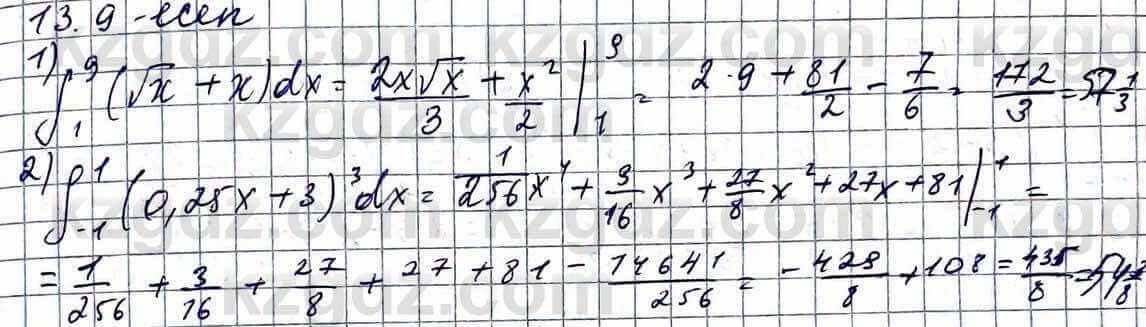 13.9 - есеп
1) ∫₁⁹ (√x + x)dx = 2x√x/3 + x²/2 |₁⁹ = 2·9 + 81/2 - 7/6 = 172/3 = 57 1/3
2) ∫₋₁¹ (0,25x + 3)³dx = 1/256 x⁴ + 3/16 x³ + 27/8 x² + 27x + 81 |₋₁¹ =
= 1/256 + 3/16 + 27/8 + 27 + 81 - 14641/256 = - 429/8 + 108 = 435/8 = 54 3/8